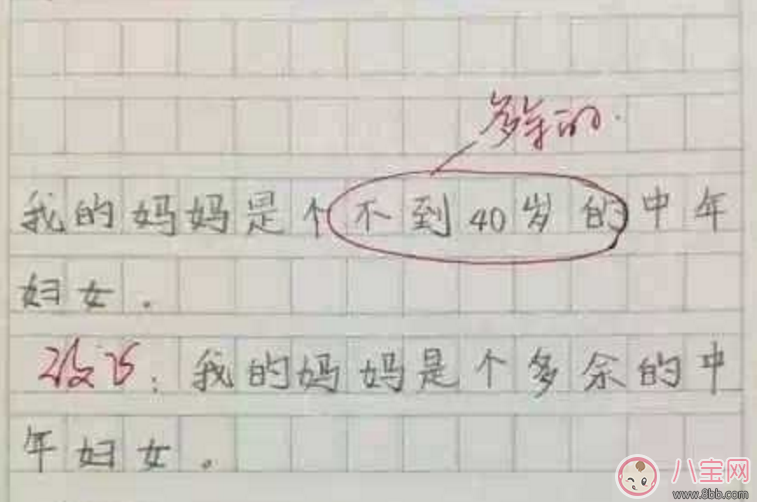 多余的.
我的妈妈是个不到40岁的中年
妇女.
改正:我的妈妈是个多余的中
年妇女。
八宝网
www.8bb.com